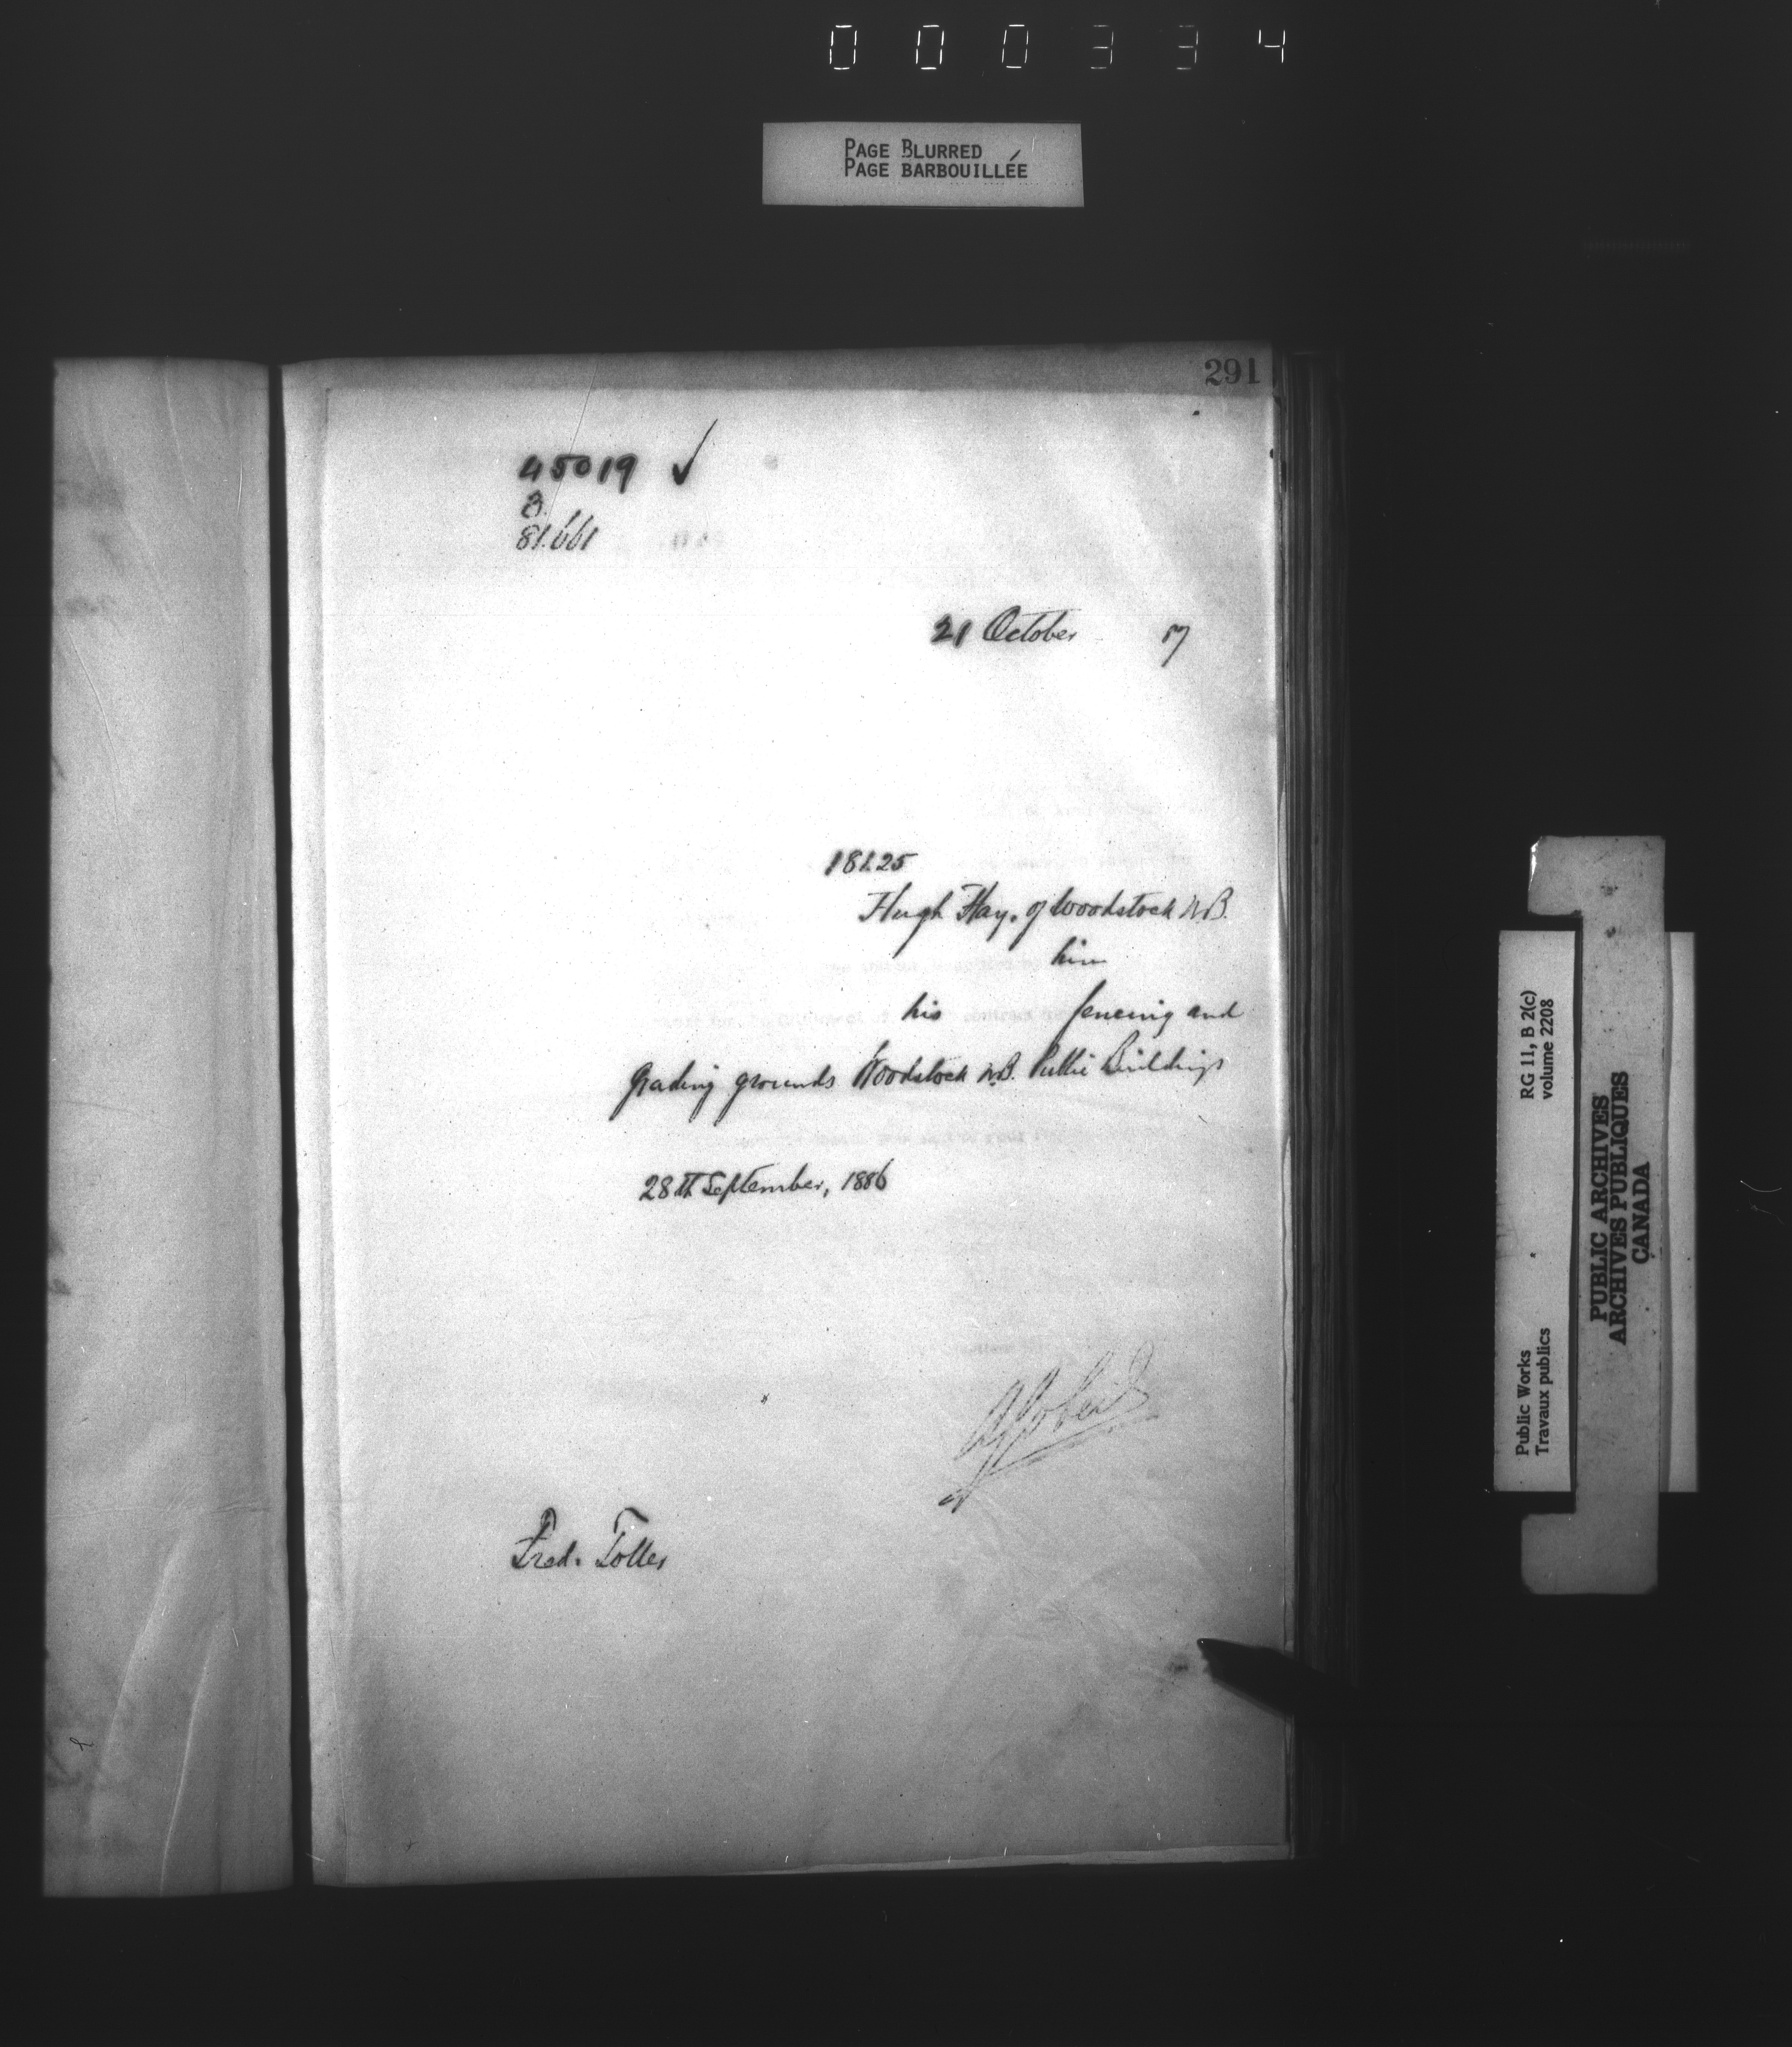 000334
PAGE BLURRED
PAGE BARBOUILLÉE
291
45019 ✓
81.661
21 October 7
181.25
Hugh Hay, of Woodstock N.B.
him
his fencing and
grading grounds Woodstock N.B. Public Buildings
28th September, 1886
Fred. Toller
RG 11, B 2(c)
volume 2208
Public Works
Travaux publics
PUBLIC ARCHIVES
ARCHIVES PUBLIQUES
CANADA